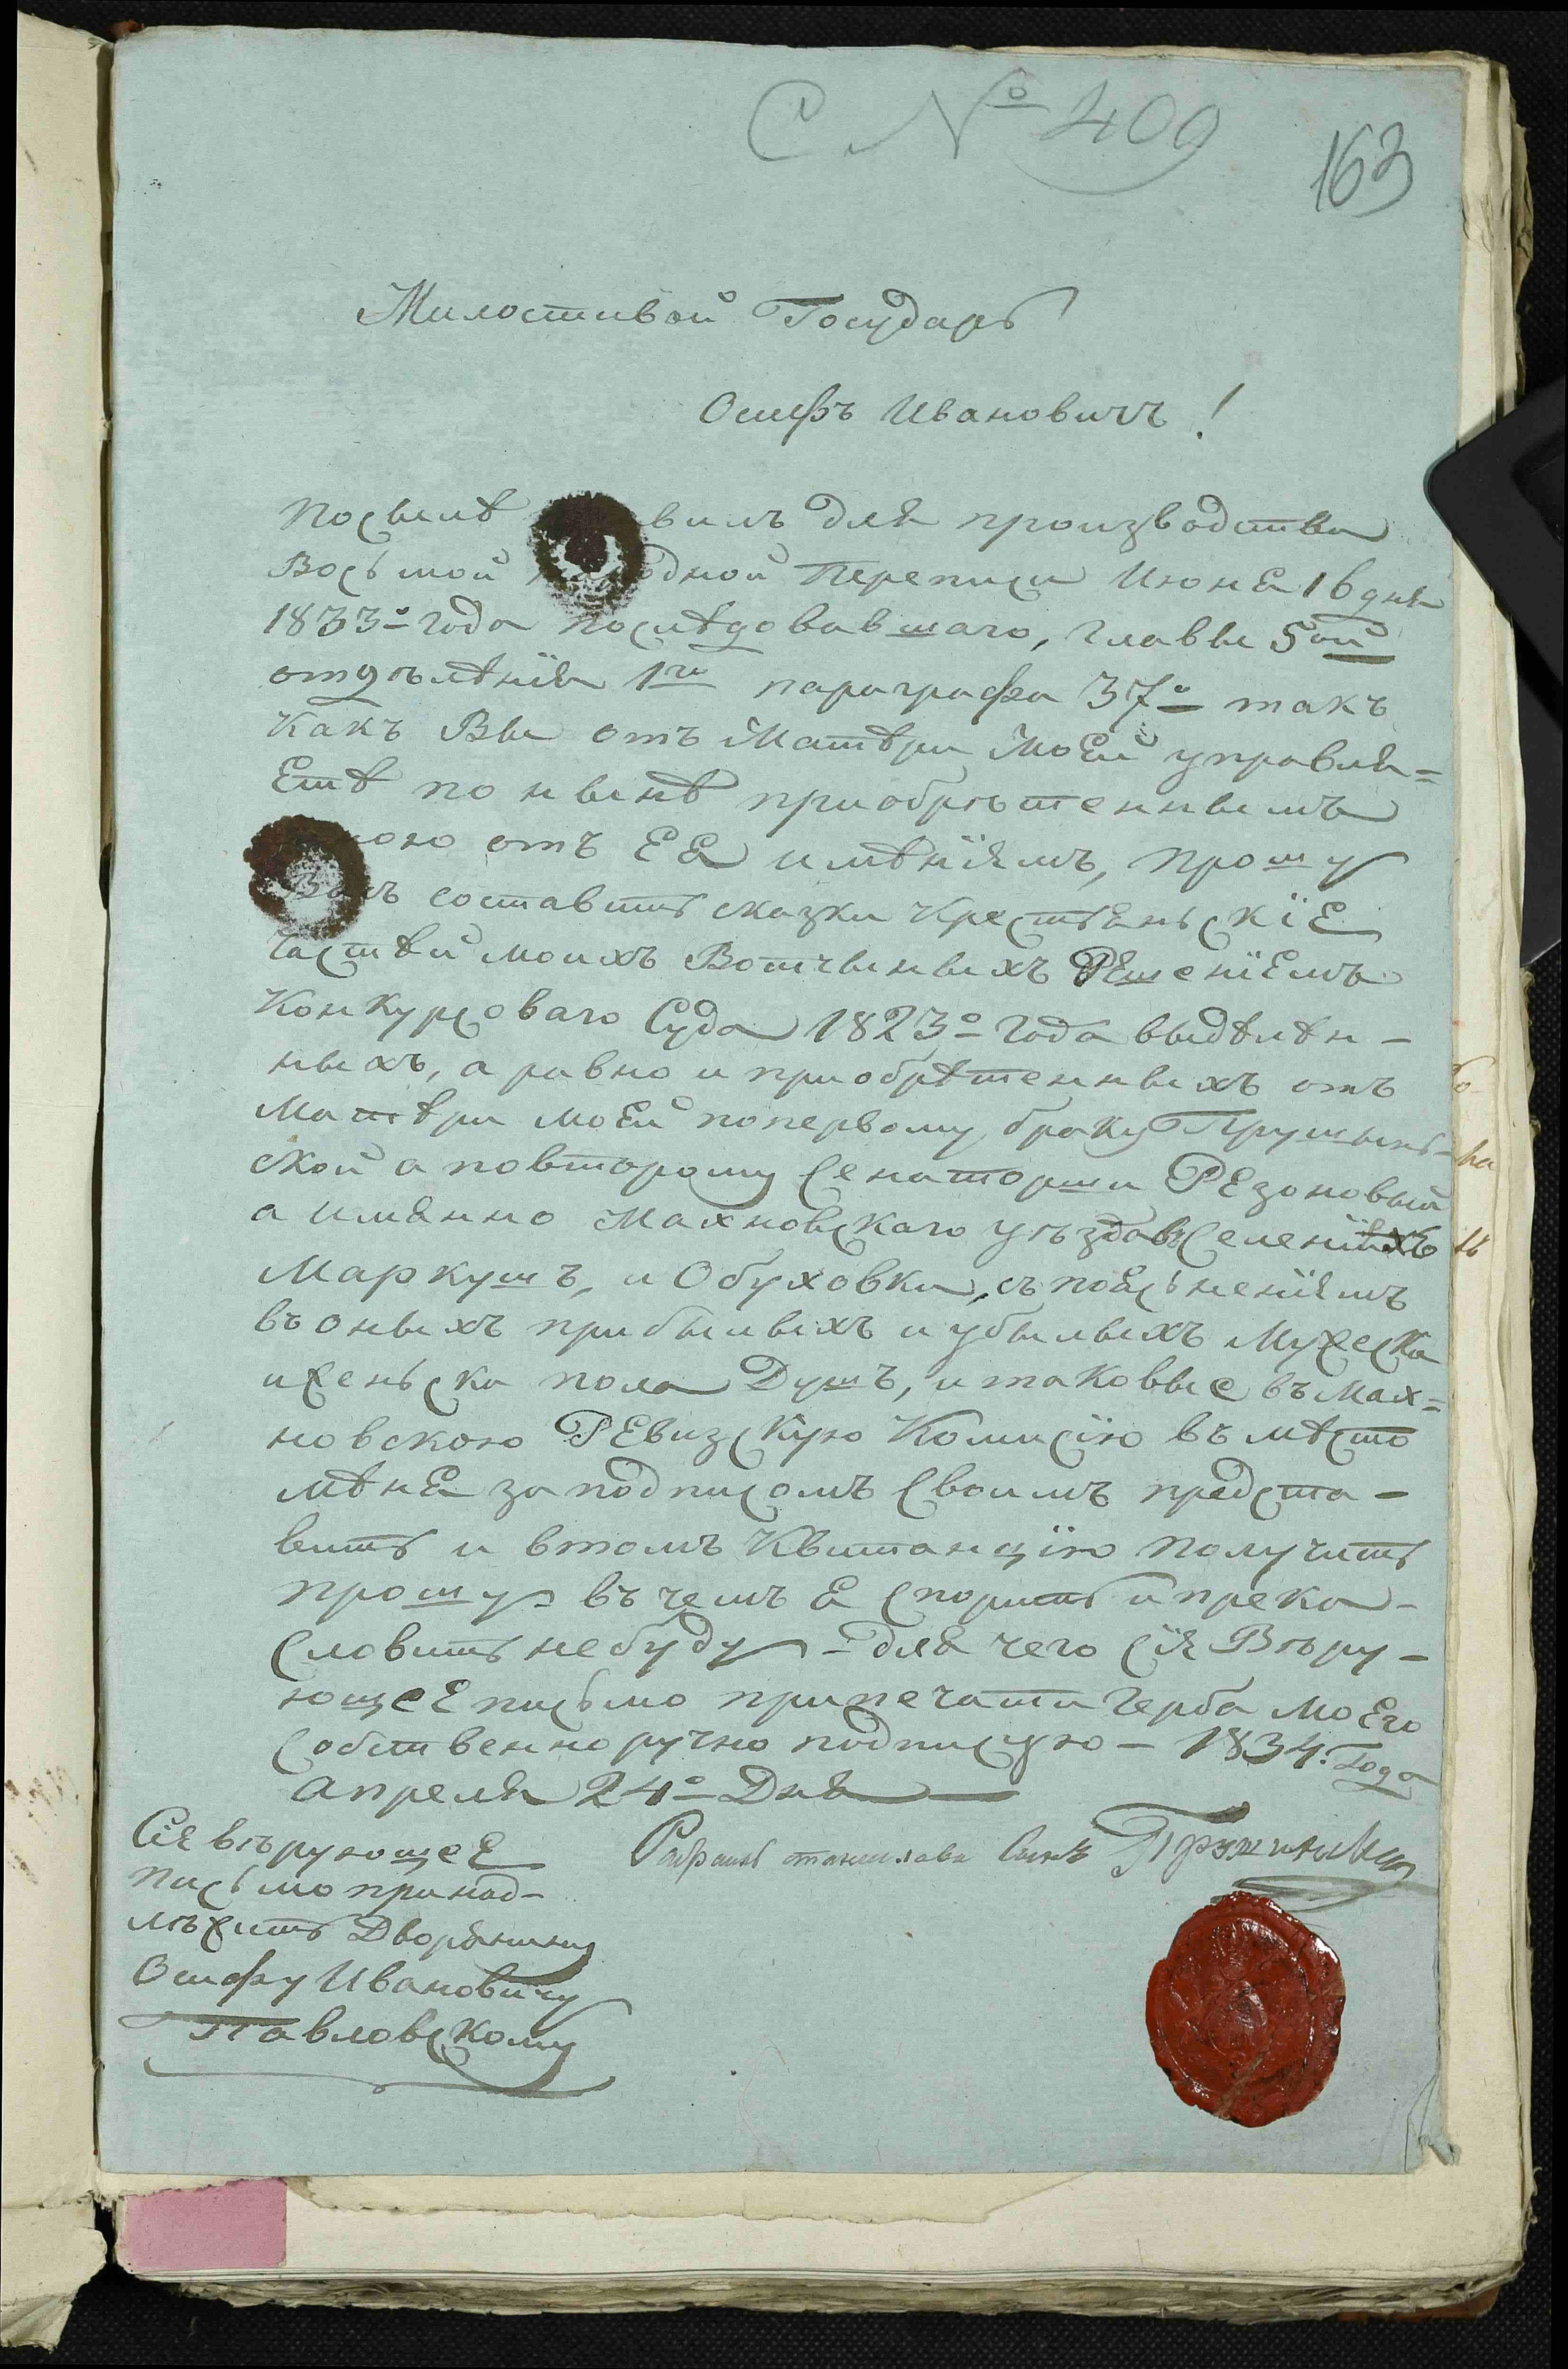 С № 409
163
Милостивой Государь
Осифъ Ивановичъ!
Посылѣ вилъ для производства
Восьмой одной Переписи Июня 16 дня
1833º года послѣдовавшаго, главы 5ой
отдѣлѣнія 1го параграфа 37º такъ
Какъ Вы отъ Матѣри Моей управля=
Етѣ по нынѣ приобрѣтеннымъ
мною отъ ЕЯ имѣніямъ, прошу
Васъ составить сказки Крестьянскіе
частѣй моихъ Вотчинныхъ Решеніемъ
Конкурсоваго Суда 1823º года выдѣлѣн-
ныхъ, а равно и приобрѣтенныхъ отъ
Матѣри моей поперваму браку Прушинь-
ской а повторому Сенаторши Резоновый
а имянно Махновскаго уѣзда въ Селеніяхъ
Маркушъ, и Обуховки, съ поясненіямъ
въ оныхъ прибылыхъ и убылыхъ Мужеска
и женьска пола Душъ, и таковые въ Мах=
новскою Ревизскую Комисію въ мѣсто
мѣня за подписомъ Своимъ предста-
вить и втомъ Квитанцію получить
прошу въ чемъ я спорить и преко-
словить небуду - для чего сіе Вѣру-
ющее письмо припечати Герба моего
Собственноручно подписую - 1834. Года
Апреля 24º Дня
Сіе вѣрующее
письмо принад-
лѣжить Дворянину
Осифу Ивановичу
Павловскому
станислава Сынъ